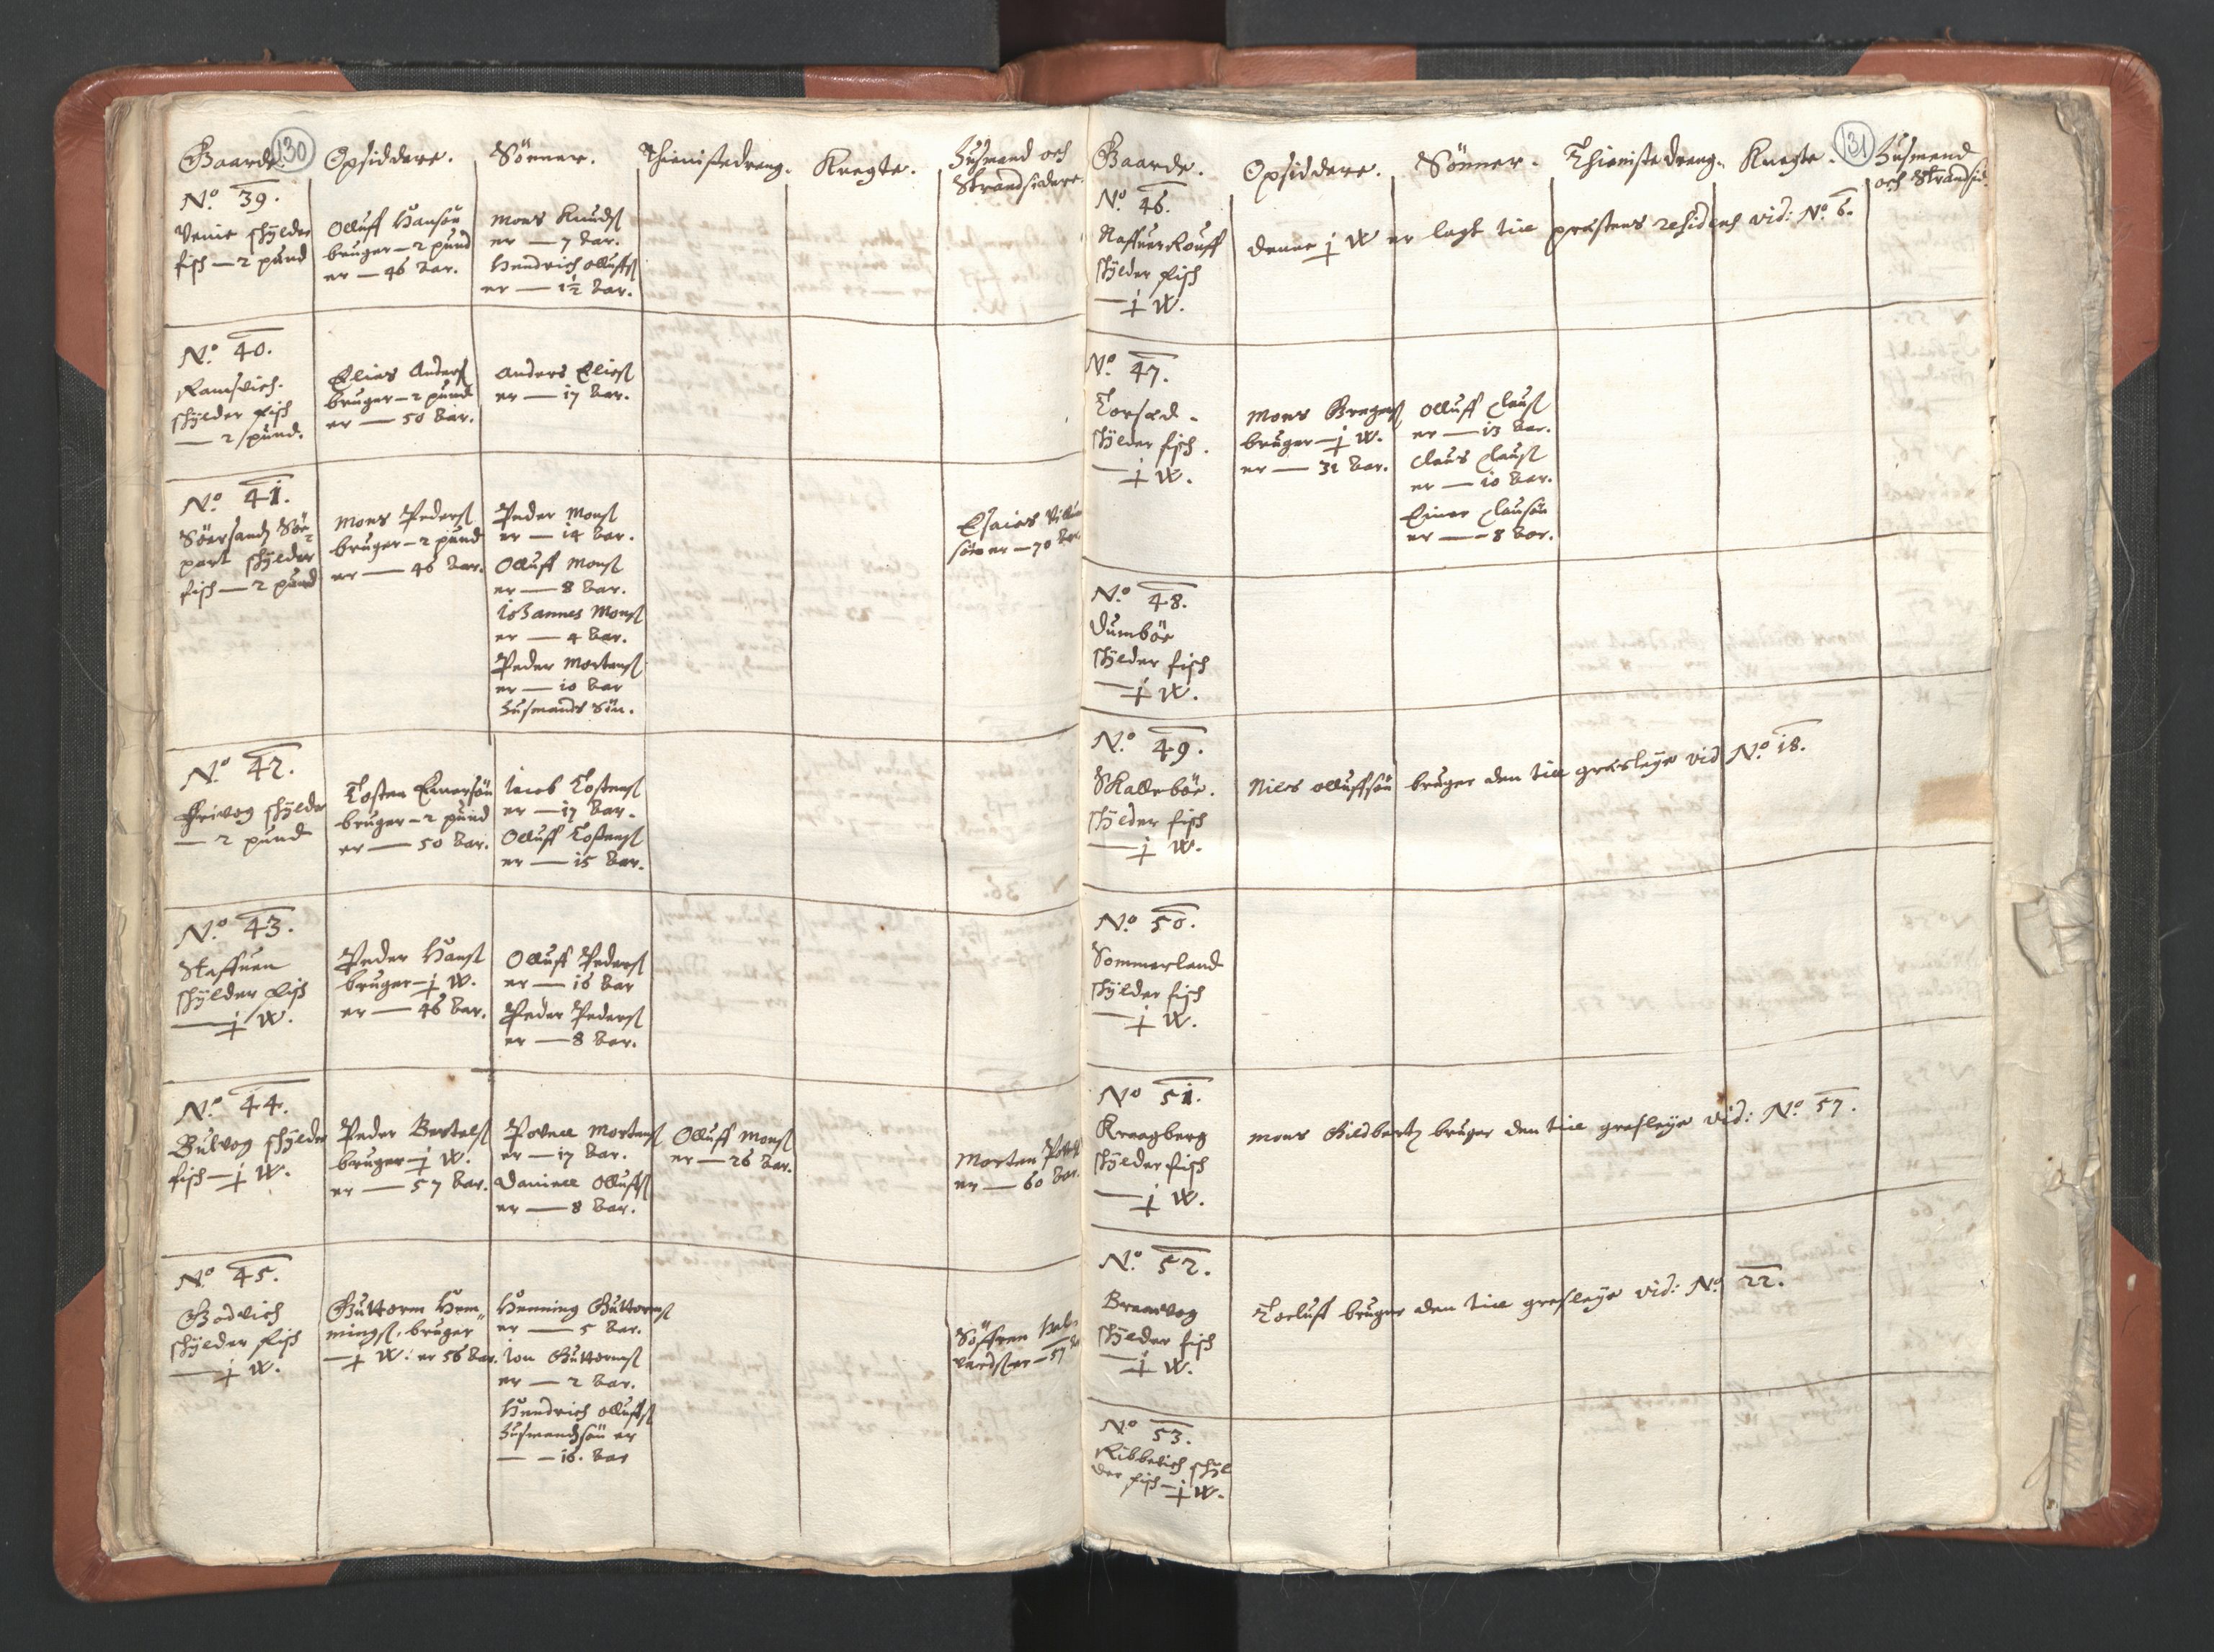 130
Gaarde. Opsiddere. Sönner. Thienistedreng. Knegte. Husmend och
Strandsidere.
No. 39.
Veine schÿlder
fisch — 2 pund
Olluff Hansön
bruger — 2 pund
er — 46 aar.
Mons Knudsß
er — 7 aar.
Hendrich Olluffß
er — 1½ aar.
No. 40.
Ramsvich.
schÿlder fisch
— 2 pund.
Elias Andersß
bruger — 2 pund
er — 50 aar.
Anders Eliesß
er — 17 aar.
No. 41.
Söersand Sör
part schÿlder
fisch — 2 pund
Mons Pedersß
bruger — 2 pund
er — 46 aar.
Peder Monsß
er — 14 aar.
Olluff Monsß
er — 8 aar.
Johannes Monsß
er — 4 aar.
Peder Mortensß
er — 10 aar
Husmands Sön.
Esaias
sön er — 70 aar
No. 42.
schÿlder
— 2 pund
Tosten Einersön
bruger — 2 pund
er — 50 aar.
Jacob Tostensß
er — 17 aar.
Olluff Tostensß
er — 15 aar.
No. 43.
Steffuen
schÿlder fisch
— j W.
Peder Hansß
bruger — j W.
er — 46 aar.
Olluff Pedersß
er — 16 aar
Peder Pedersß
er — 8 aar.
No. 44.
Bulvog schÿlder
fisch — j W.
Peder Bertelsß
bruger — j W.
er — 57 aar.
Povell Mortensß
er — 17 aar.
Daniell Olluffsß
er — 8 aar.
Olluff Monsß
er — 26 aar.
Morten
er — 60 aar.
No. 45.
Godvich
schÿlder fisch
— j W.
Guttorm Hem
mingsß. bruger
— j W. er 56 aar.
Henning Guttormsß
er — 5 aar.
Jon Guttormsß
er — 2 aar.
Hendrich Olluffsß
Husmandsön er
— 16. aar
Söffren Hal
vardsß er — 57
131
Gaarde. Opsiddere. Sönner. Thienistedreng. Knegte. Husmend
och Strandsid.
No. 46.
schÿlder fisch
— j W.
Denne j W er lagt till prestens residens vid: No. 6.
No. 47.
Torsæd.
schÿlder fisch.
— j W.
Mons
bruger — j W.
er — 31 aar.
Olluff Clausß
er — 13 aar.
Claus Clausß
er — 10 aar.
Einer Clausön
er — 8 aar.
No. 48.
Dumböe
schÿlder fisch
— j W.
No. 49.
Skalleböe.
schÿlder fisch
— j W.
Niels Olluffsön bruger den till græsleye vid No. 18.
No. 50.
Sommerland
schÿlder fisch
— j W.
No 51.
Kraagberg
schÿlder fisch
— j W.
Mons Gildbertz bruger den till gresleye vid: No. 57.
No. 52.
Braavog
schÿlder fisch
— j W.
Torluff bruger den till gresleye vid: No. 22.
No 53.
Ribbevich schÿl
der fisch — j W.